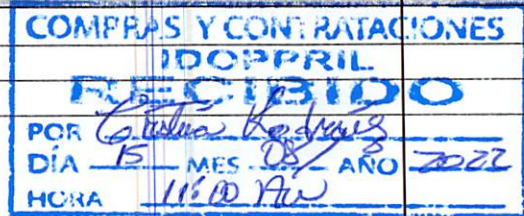 COMPRAS Y CONTRATACIONES
IDOPPRIL
RECIBIDO
POR Cristina Rodríguez
DÍA 15 MES 08/ AÑO 2022
HORA 11:00 AM